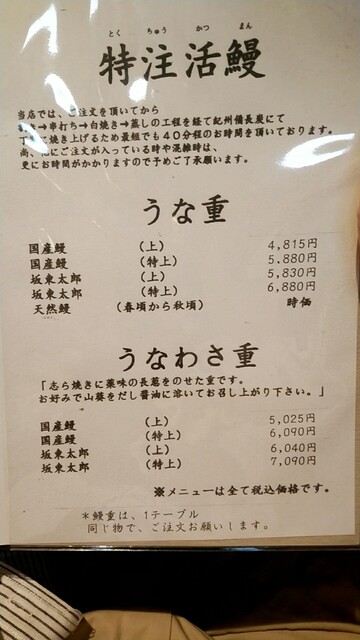 とく ちゅう かつ まん
特注活鰻
当店では、ご注文を頂いてから
き→串打ち→白焼き→蒸しの工程を経て紀州備長炭にて
に焼き上げるため最短でも40分程のお時間を頂いております。
尚、にご注文が入っている時や混雑時は、
更にお時間がかかりますので予めご了承願います。
うな重
国産鰻 (上) 4,815円
国産鰻 (特上) 5,880円
坂東太郎 (上) 5,830円
坂東太郎 (特上) 6,880円
天然鰻 (春頃から秋頃) 時価
うなわさ重
「志ら焼きに薬味の長葱をのせた重です。
お好みで山葵をだし醤油に溶いてお召し上がり下さい。」
国産鰻 (上) 5,025円
国産鰻 (特上) 6,090円
坂東太郎 (上) 6,040円
坂東太郎 (特上) 7,090円
※メニューは全て税込価格です。
*鰻重は、1テーブル
同じ物で、ご注文お願いします。